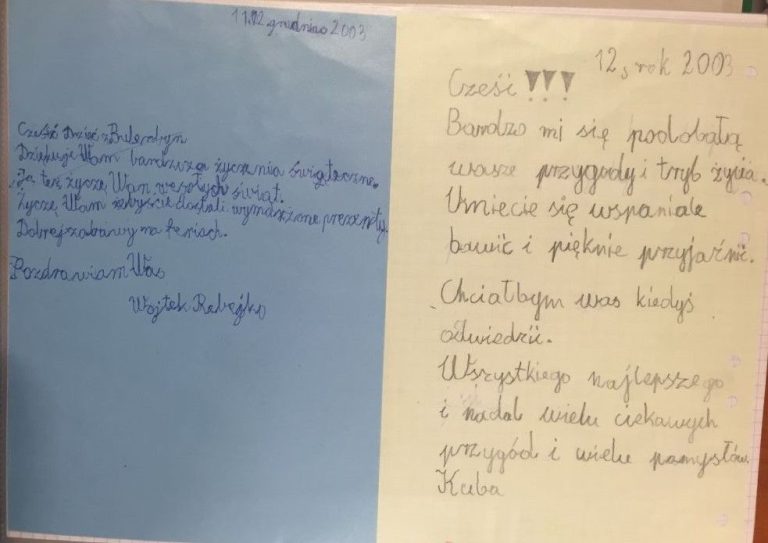 11.12 grudnia 2003
Cześć Dzieci z Bulerbyn
Dziękuję Wam bardzo za życzenia świąteczne.
Ja też życzę Wam wesołych świąt.
Życzę Wam żebyście dostali wymarzone prezenty.
Dobrej zabawy na feriach.
Pozdrawiam Was
Wojtek
12, rok 2003
Cześć !!!
Bardzo mi się podobają
wasze przygody i tryb życia.
Umiecie się wspaniale
bawić i pięknie przyjaźnić.
Chciałbym was kiedyś
odwiedzić.
Wszystkiego najlepszego
i nadal wielu ciekawych
przygód i wielu pomysłów.
Kuba